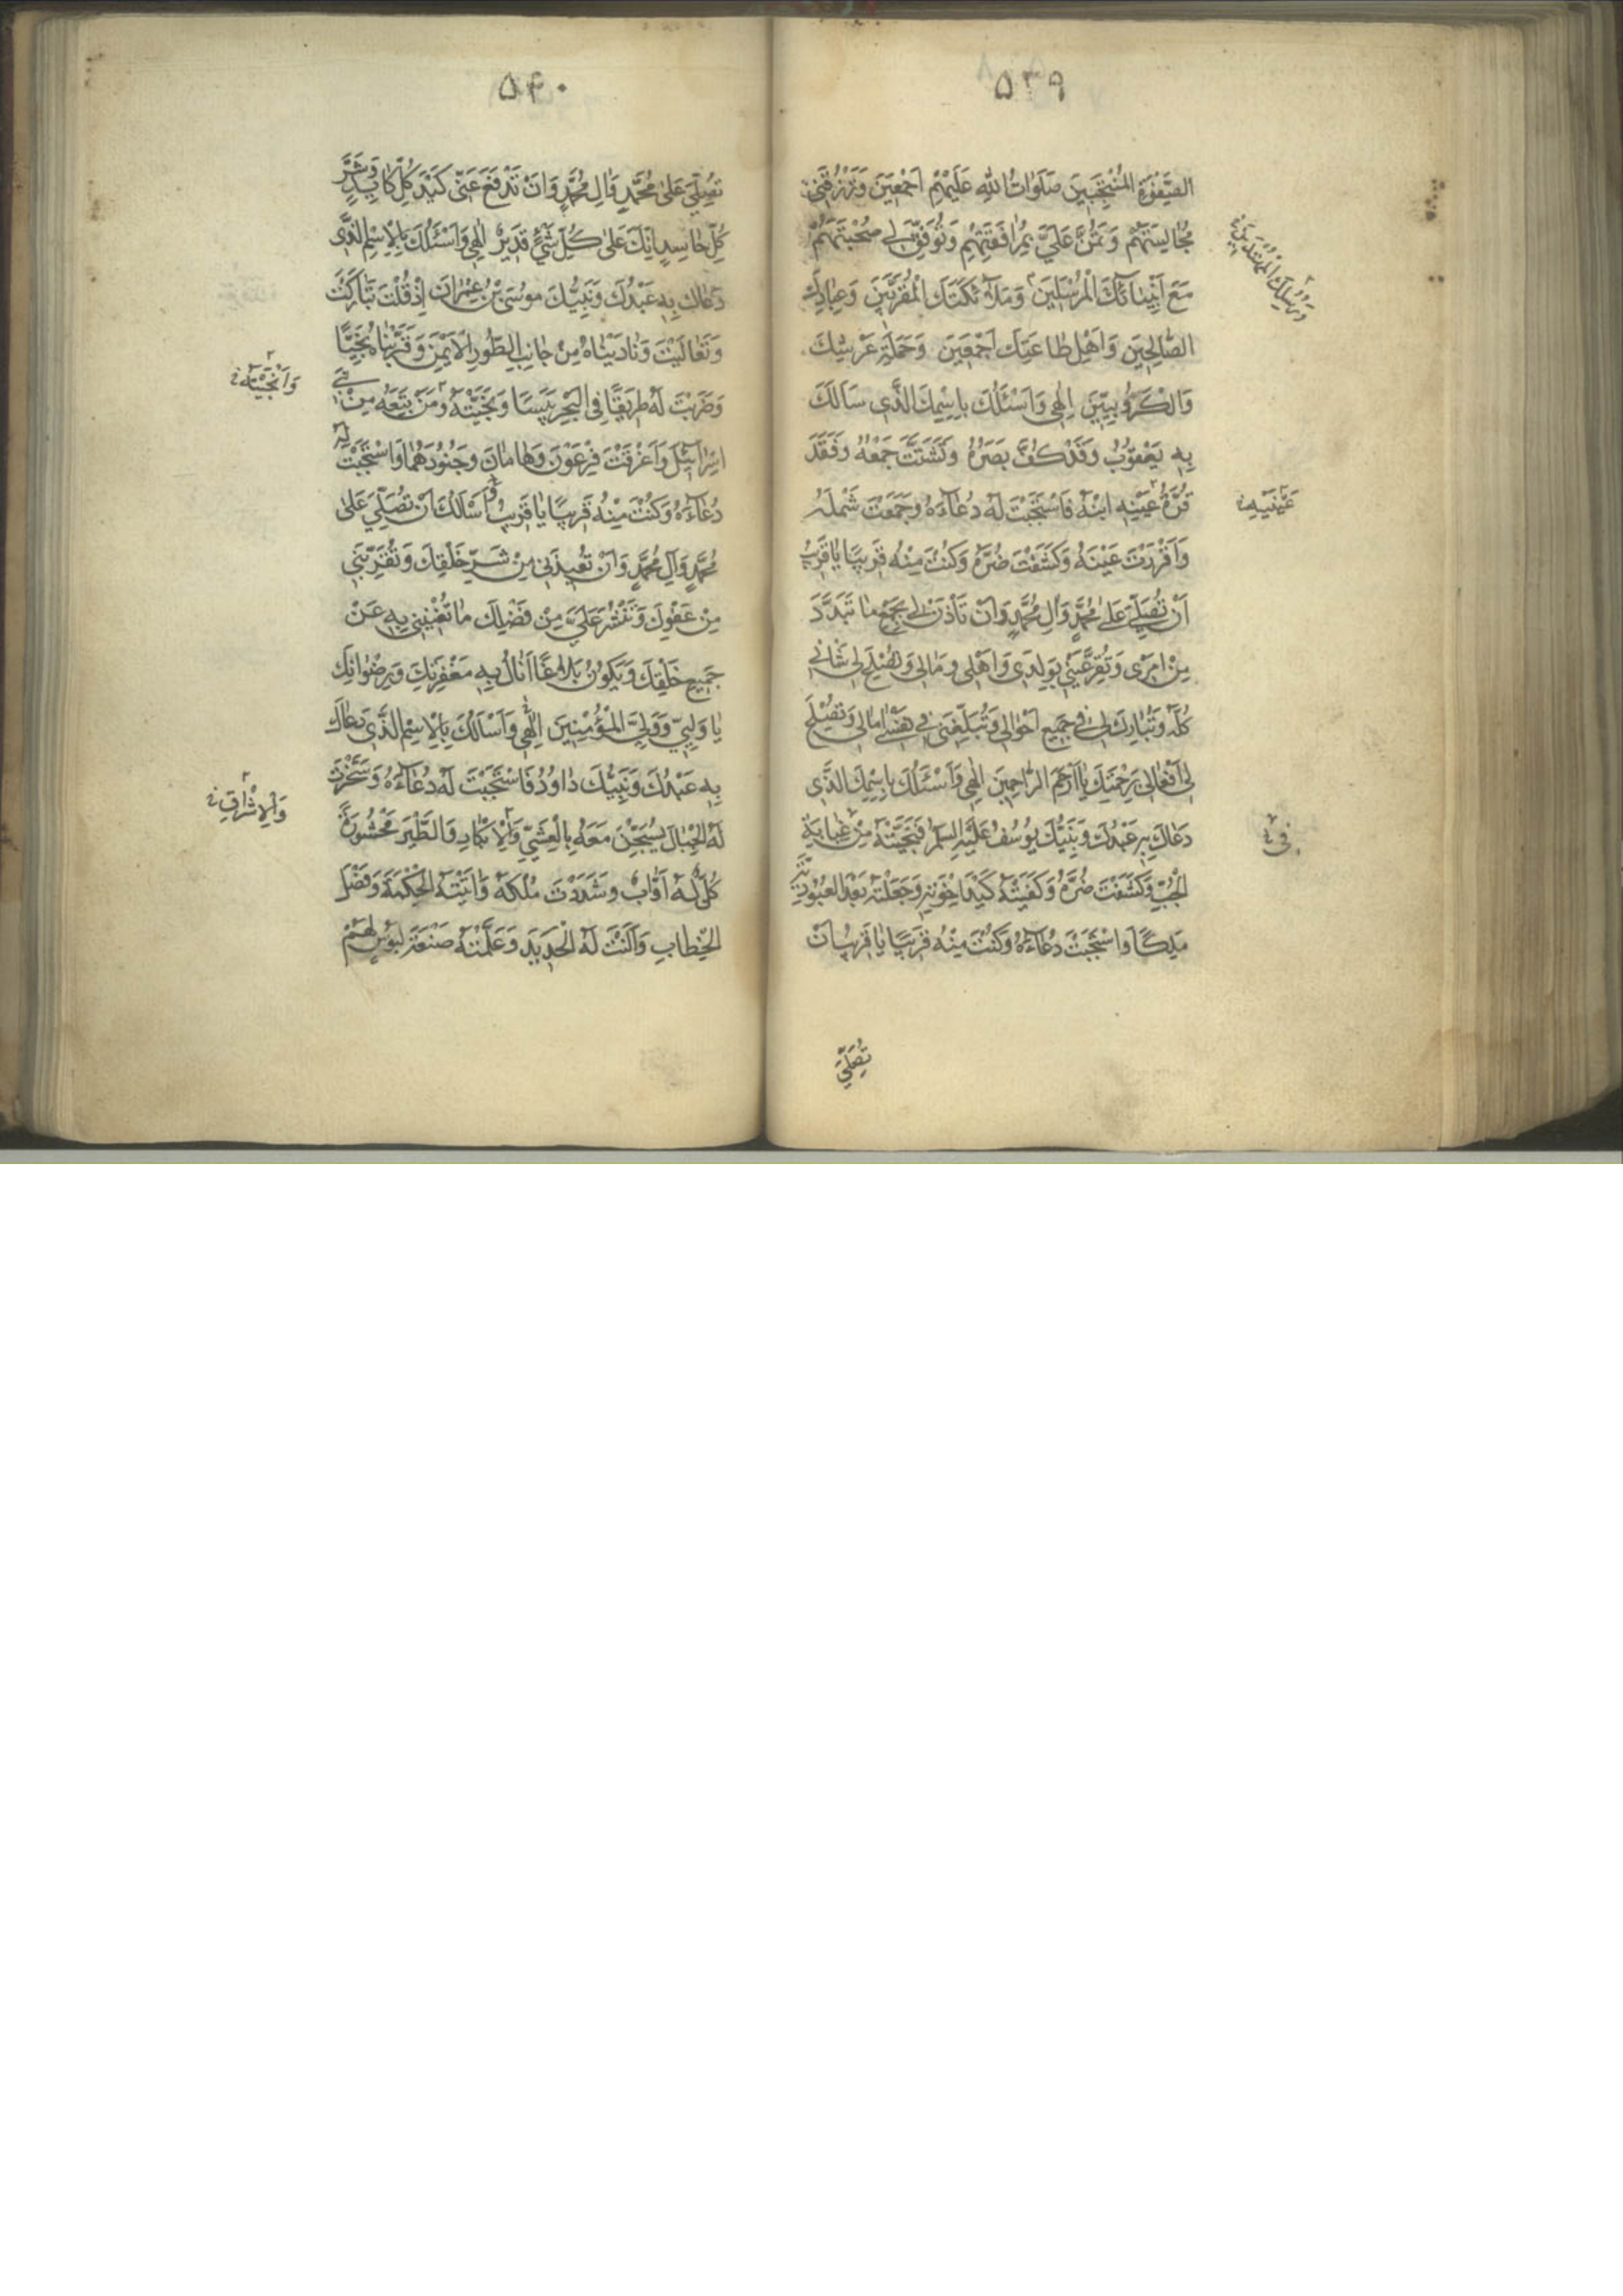 ۵۳۹
الصَّفْوَةِ الْمُنْتَجَبِينَ صَلَوَاتُ اللهِ عَلَيْهِمْ اَجْمَعِينَ وَتَرْزُقَنِي
مُجَالِسَتَهُمْ وَتَمُنَّ عَلَيَّ بِمُرَافَقَتِهِمْ وَتُوَفِّقَ لِي صُحْبَتَهُمْ
مَعَ اَنْبِيَائِكَ الْمُرْسَلِينَ وَمَلَائِكَتِكَ الْمُقَرَّبِينَ وَعِبَادِكَ
الصَّالِحِينَ وَاَهْلِ طَاعَتِكَ اَجْمَعِينَ وَحَمَلَةِ عَرْشِكَ
وَالْكَرُّوبِيِّينَ اِلٰهِي وَاَسْئَلُكَ بِاسْمِكَ الَّذِي سَاَلَكَ
بِهِ يَعْقُوبُ وَقَدْ كُفَّ بَصَرُهُ وَتَشَتَّتَ جَمْعُهُ وَفَقَدَ
قُرَّةَ عَيْنِهِ ابْنَهُ فَاسْتَجَبْتَ لَهُ دُعَاءَهُ وَجَمَعْتَ شَمْلَهُ
عَيْنَيْهِ
وَاَقْرَرْتَ عَيْنَهُ وَكَشَفْتَ ضُرَّهُ وَكُنْتَ مِنْهُ قَرِيبًا يَا قَرِيبُ
اَنْ تُصَلِّيَ عَلَى مُحَمَّدٍ وَآلِ مُحَمَّدٍ وَاَنْ تَأْذَنَ لِي بِجَمْعِ مَا تَبَدَّدَ
مِنْ اَمْرِي وَتُقِرَّ عَيْنِي بِوَلَدِي وَاَهْلِي وَمَالِي وَتُصْلِحَ لِي شَأْنِي
كُلَّهُ وَتُبَارِكَ لِي فِي جَمِيعِ اَحْوَالِي وَتُبَلِّغَنِي فِي نَفْسِي اٰمَالِي وَتُصْلِحَ
لِي اَفْعَالِي بِرَحْمَتِكَ يَا اَرْحَمَ الرَّاحِمِينَ اِلٰهِي وَاَسْئَلُكَ بِاسْمِكَ الَّذِي
دَعَاكَ بِهِ عَبْدُكَ وَنَبِيُّكَ يُوسُفُ عَلَيْهِ السَّلَامُ فَنَجَّيْتَهُ مِنْ غَيَابَةِ
الْجُبِّ وَكَشَفْتَ ضُرَّهُ وَكَفَيْتَهُ كَيْدَ اِخْوَتِهِ وَجَعَلْتَهُ بَعْدَ الْعُبُودِيَّةِ
مَلِكًا وَاسْتَجَبْتَ دُعَاءَهُ وَكُنْتَ مِنْهُ قَرِيبًا يَا قَرِيبُ اَنْ
تُصَلِّيَ
۵۴۰
تُصَلِّيَ عَلَى مُحَمَّدٍ وَآلِ مُحَمَّدٍ وَاَنْ تَدْفَعَ عَنِّي كَيْدَ كُلِّ كَايِدٍ وَشَرَّ
كُلِّ حَاسِدٍ اِنَّكَ عَلَى كُلِّ شَيْءٍ قَدِيرٌ اِلٰهِي وَاَسْئَلُكَ بِالْاِسْمِ الَّذِي
دَعَاكَ بِهِ عَبْدُكَ وَنَبِيُّكَ مُوسَى بْنُ عِمْرَانَ اِذْ قُلْتَ تَبَارَكْتَ
وَتَعَالَيْتَ وَنَادَيْنَاهُ مِنْ جَانِبِ الطُّورِ الْاَيْمَنِ وَقَرَّبْنَاهُ نَجِيًّا
وَاَنْجَيْتَهُ
وَضَرَبْتَ لَهُ طَرِيقًا فِي الْبَحْرِ يَبَسًا وَنَجَّيْتَهُ وَمَنْ تَبِعَهُ مِنْ بَنِي
اِسْرَائِيلَ وَاَغْرَقْتَ فِرْعَوْنَ وَهَامَانَ وَجُنُودَهُمَا وَاسْتَجَبْتَ لَهُ
دُعَاءَهُ وَكُنْتَ مِنْهُ قَرِيبًا يَا قَرِيبُ وَاَسْاَلُكَ اَنْ تُصَلِّيَ عَلَى
مُحَمَّدٍ وَآلِ مُحَمَّدٍ وَاَنْ تُعِيذَنِي مِنْ شَرِّ خَلْقِكَ وَتُقَرِّبَنِي
مِنْ عَفْوِكَ وَتَنْشُرَ عَلَيَّ مِنْ فَضْلِكَ مَا تُغْنِينِي بِهِ عَنْ
جَمِيعِ خَلْقِكَ وَيَكُونُ بَلَاغًا اَنَالُ بِهِ مَغْفِرَتَكَ وَرِضْوَانَكَ
يَا وَلِيِّي وَوَلِيَّ الْمُؤْمِنِينَ اِلٰهِي وَاَسْاَلُكَ بِالْاِسْمِ الَّذِي دَعَاكَ
بِهِ عَبْدُكَ وَنَبِيُّكَ دَاوُدُ فَاسْتَجَبْتَ لَهُ دُعَاءَهُ وَسَخَّرْتَ
وَالْاِشْرَاقِ
لَهُ الْجِبَالَ يُسَبِّحْنَ مَعَهُ بِالْعَشِيِّ وَالْاِبْكَارِ وَالطَّيْرَ مَحْشُورَةً
كُلٌّ لَهُ اَوَّابٌ وَشَدَدْتَ مُلْكَهُ وَآتَيْتَهُ الْحِكْمَةَ وَفَصْلَ
الْخِطَابِ وَاَلَنْتَ لَهُ الْحَدِيدَ وَعَلَّمْتَهُ صَنْعَةَ لَبُوسٍ لَهُمْ